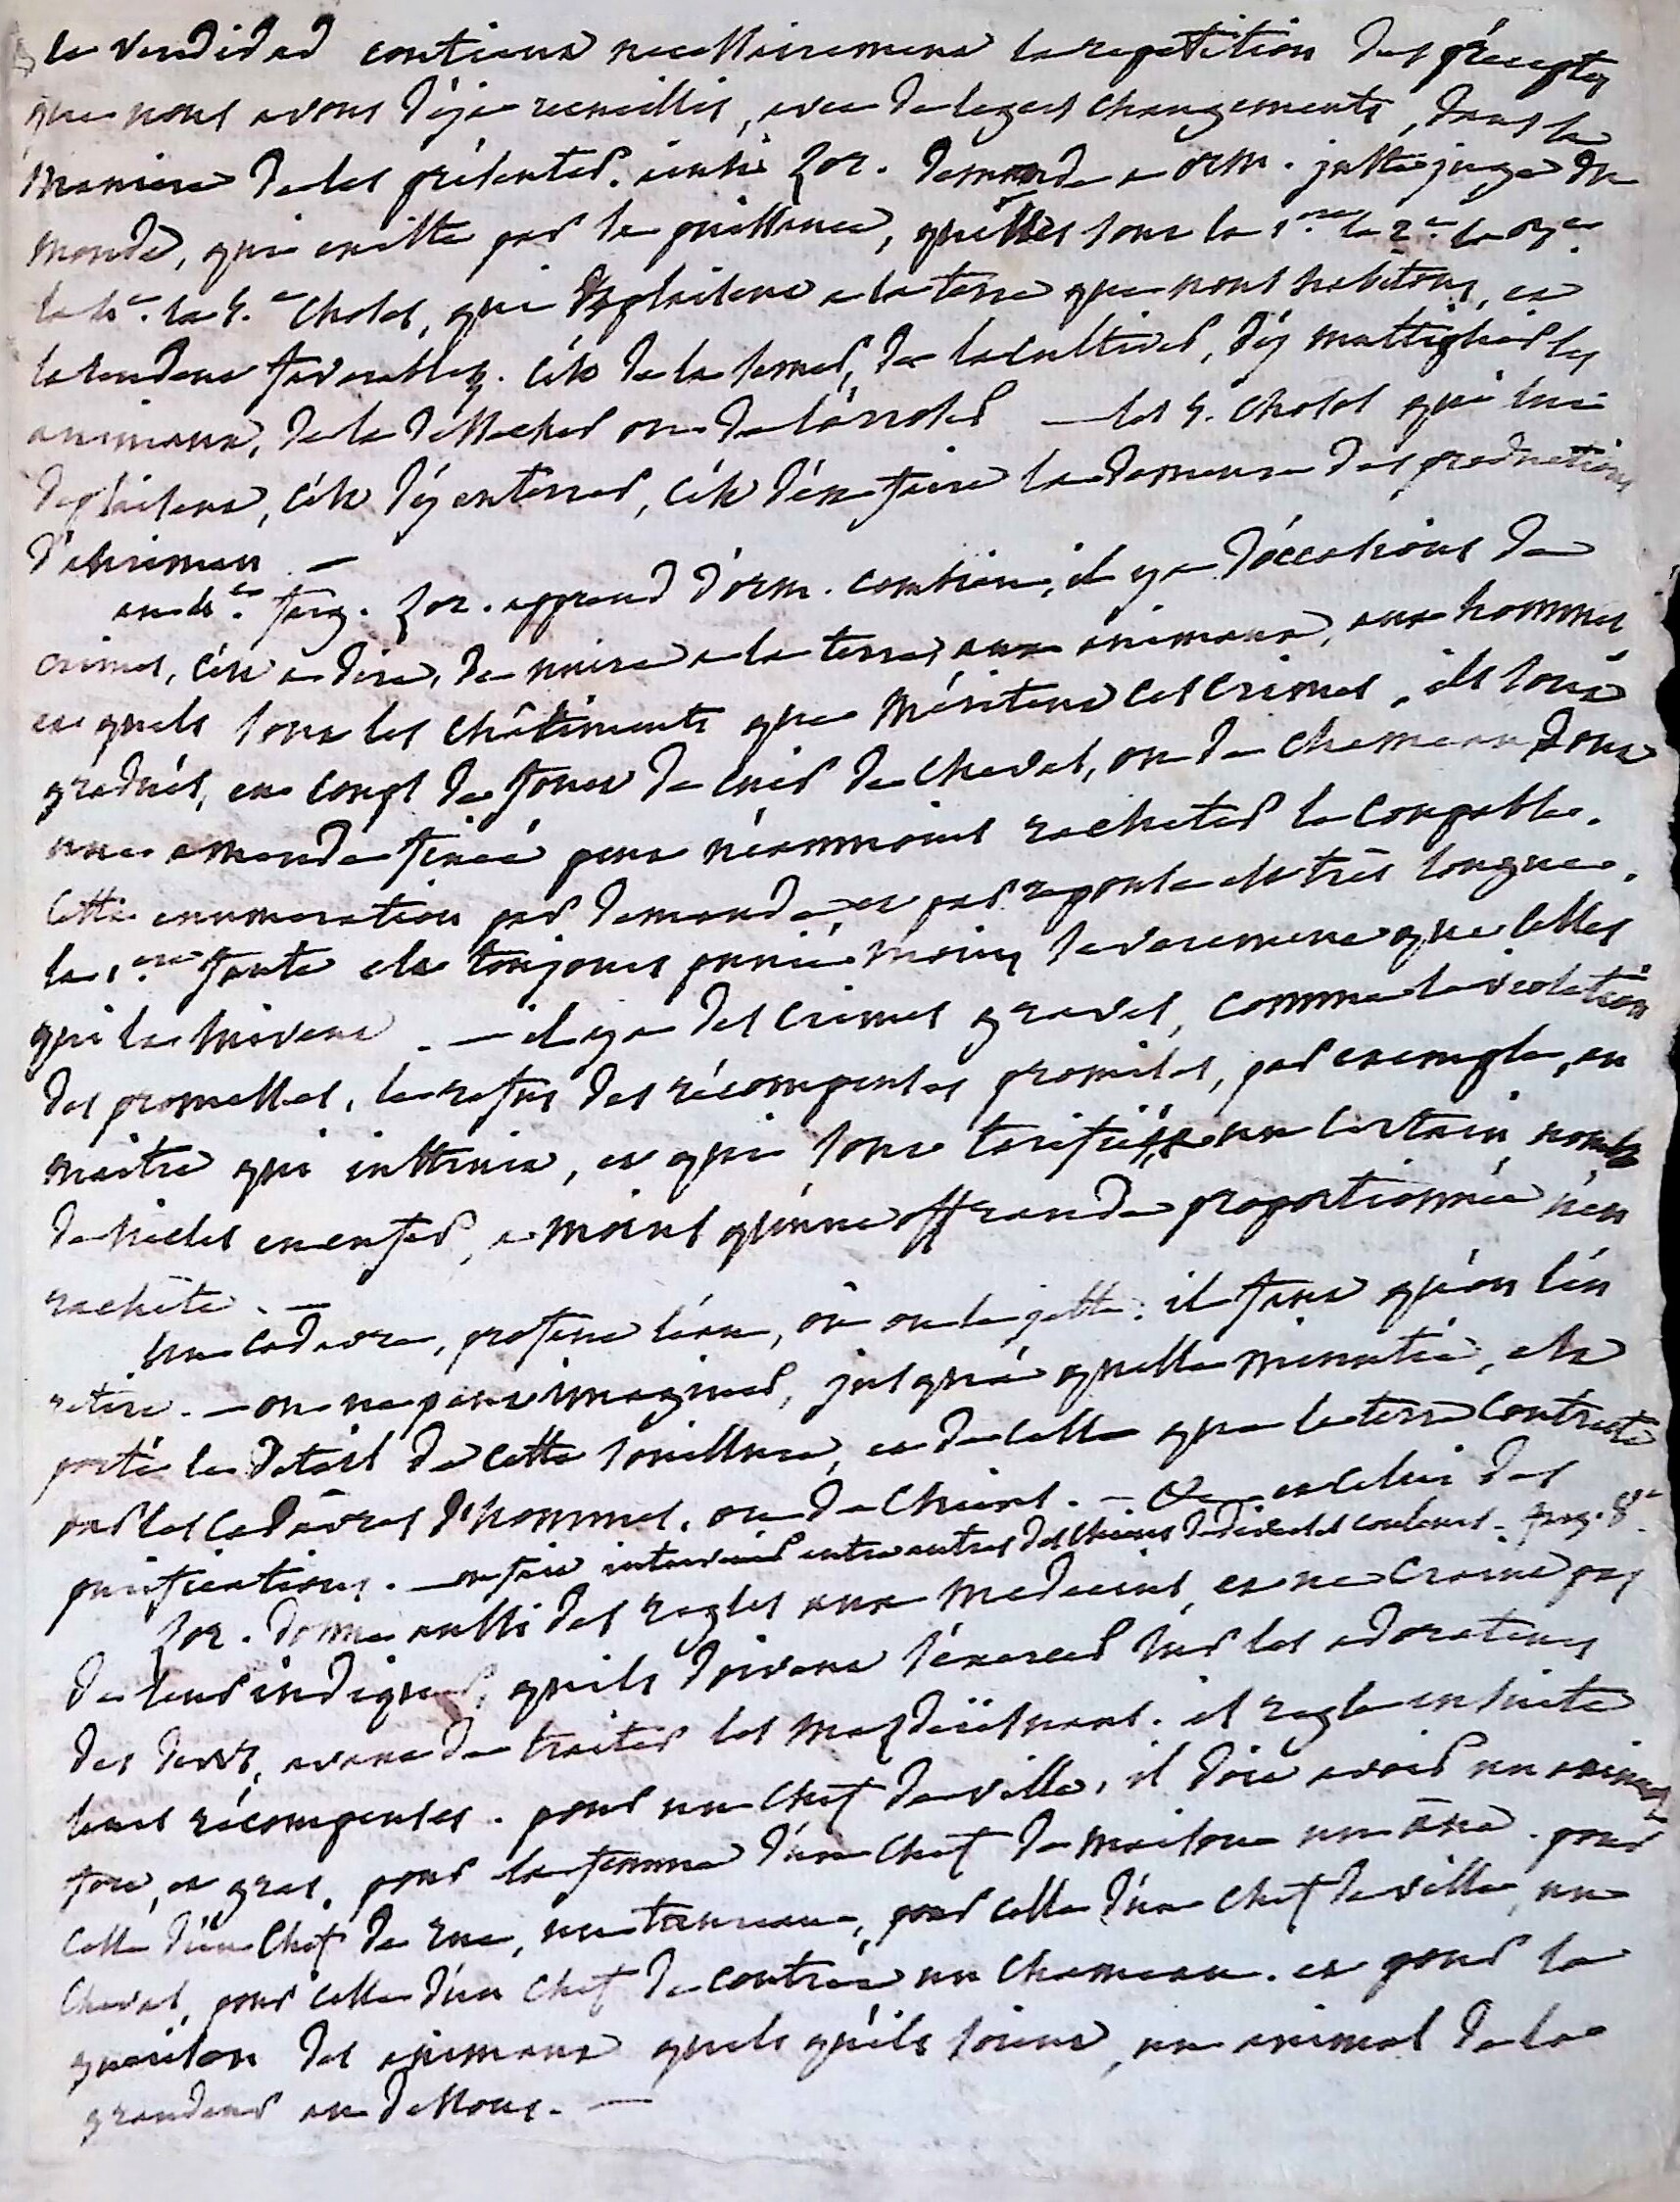 le Vendidad contient necessairement la repetition des préceptes
que nous avons déja recueillis, avec de legers changements, dans la
maniere de les présenter. ainsi Zor. demande a orm. juste juge du
monde, qui existe par sa puissance, quelles sont la 1.ere la 2.e la 3.e
la 4.e la 5.e choses, qui déplaisent a la terre que nous habitons, et
la rendent favorable. c'est de la semer, de la cultiver, d'y multiplier les
animaux, de la dessecher ou de l'arroser — les 5. choses qui lui
déplaisent, c'est d'y enterrer, c'est d'en faire la demeure des productions
d'ahriman. —
au 4.e farg. Zor. apprend d'orm. combien, il y a d'occasions de
crimes, c'est a dire, de nuire a la terre, aux animaux, aux hommes,
et quels sont les châtiments que méritent ces crimes. ils sont
gradués, en coups de fouet de cuir de cheval, ou de chameau dont
une amende fixée peut néanmoins racheter le coupable.
cette enumeration par demande, et par reponse est très longue.
la 1.ere faute est toujours punie moins severement que celles
qui la suivent. — il y a des crimes graves, comme la violation
des promesses, le refus des récompenses promises, par exemple, au
maitre qui instruit, et qui sont tarifiés, un certain nombre
de siecles en enfer, a moins qu'une offrande proportionnée n'en
rachete. —
un cadavre, profane l'eau, où on le jette: il faut qu'on l'en
retire. — on ne peut imaginer, jusqu'a quelle minutie, est
porté le détail de cette souillure, et de celle que la terre contracte
par les cadavres d'hommes, ou de chiens. — et celui des
purifications. — on fait intervenir entre autres des chiens de diverses couleurs - farg. 8.e
Zor. donne aussi des regles aux medecins, et ne craint pas
de leur indiquer, qu'ils doivent s'exercer sur les adorateurs
des dews, avant de traiter les mazdeïesnans. il regle ensuite
leurs récompenses. pour un chef de ville, il doit avoir un animal
fort, et gras, pour la femme d'un chef de maison un âne. pour
celle d'un chef de rue, un taureau, pour celle d'un chef de ville, un
cheval, pour celle d'un chef de contrée un chameau. et pour la
guerison des animaux quels qu'ils soient, un animal de la
grandeur au dessous. —